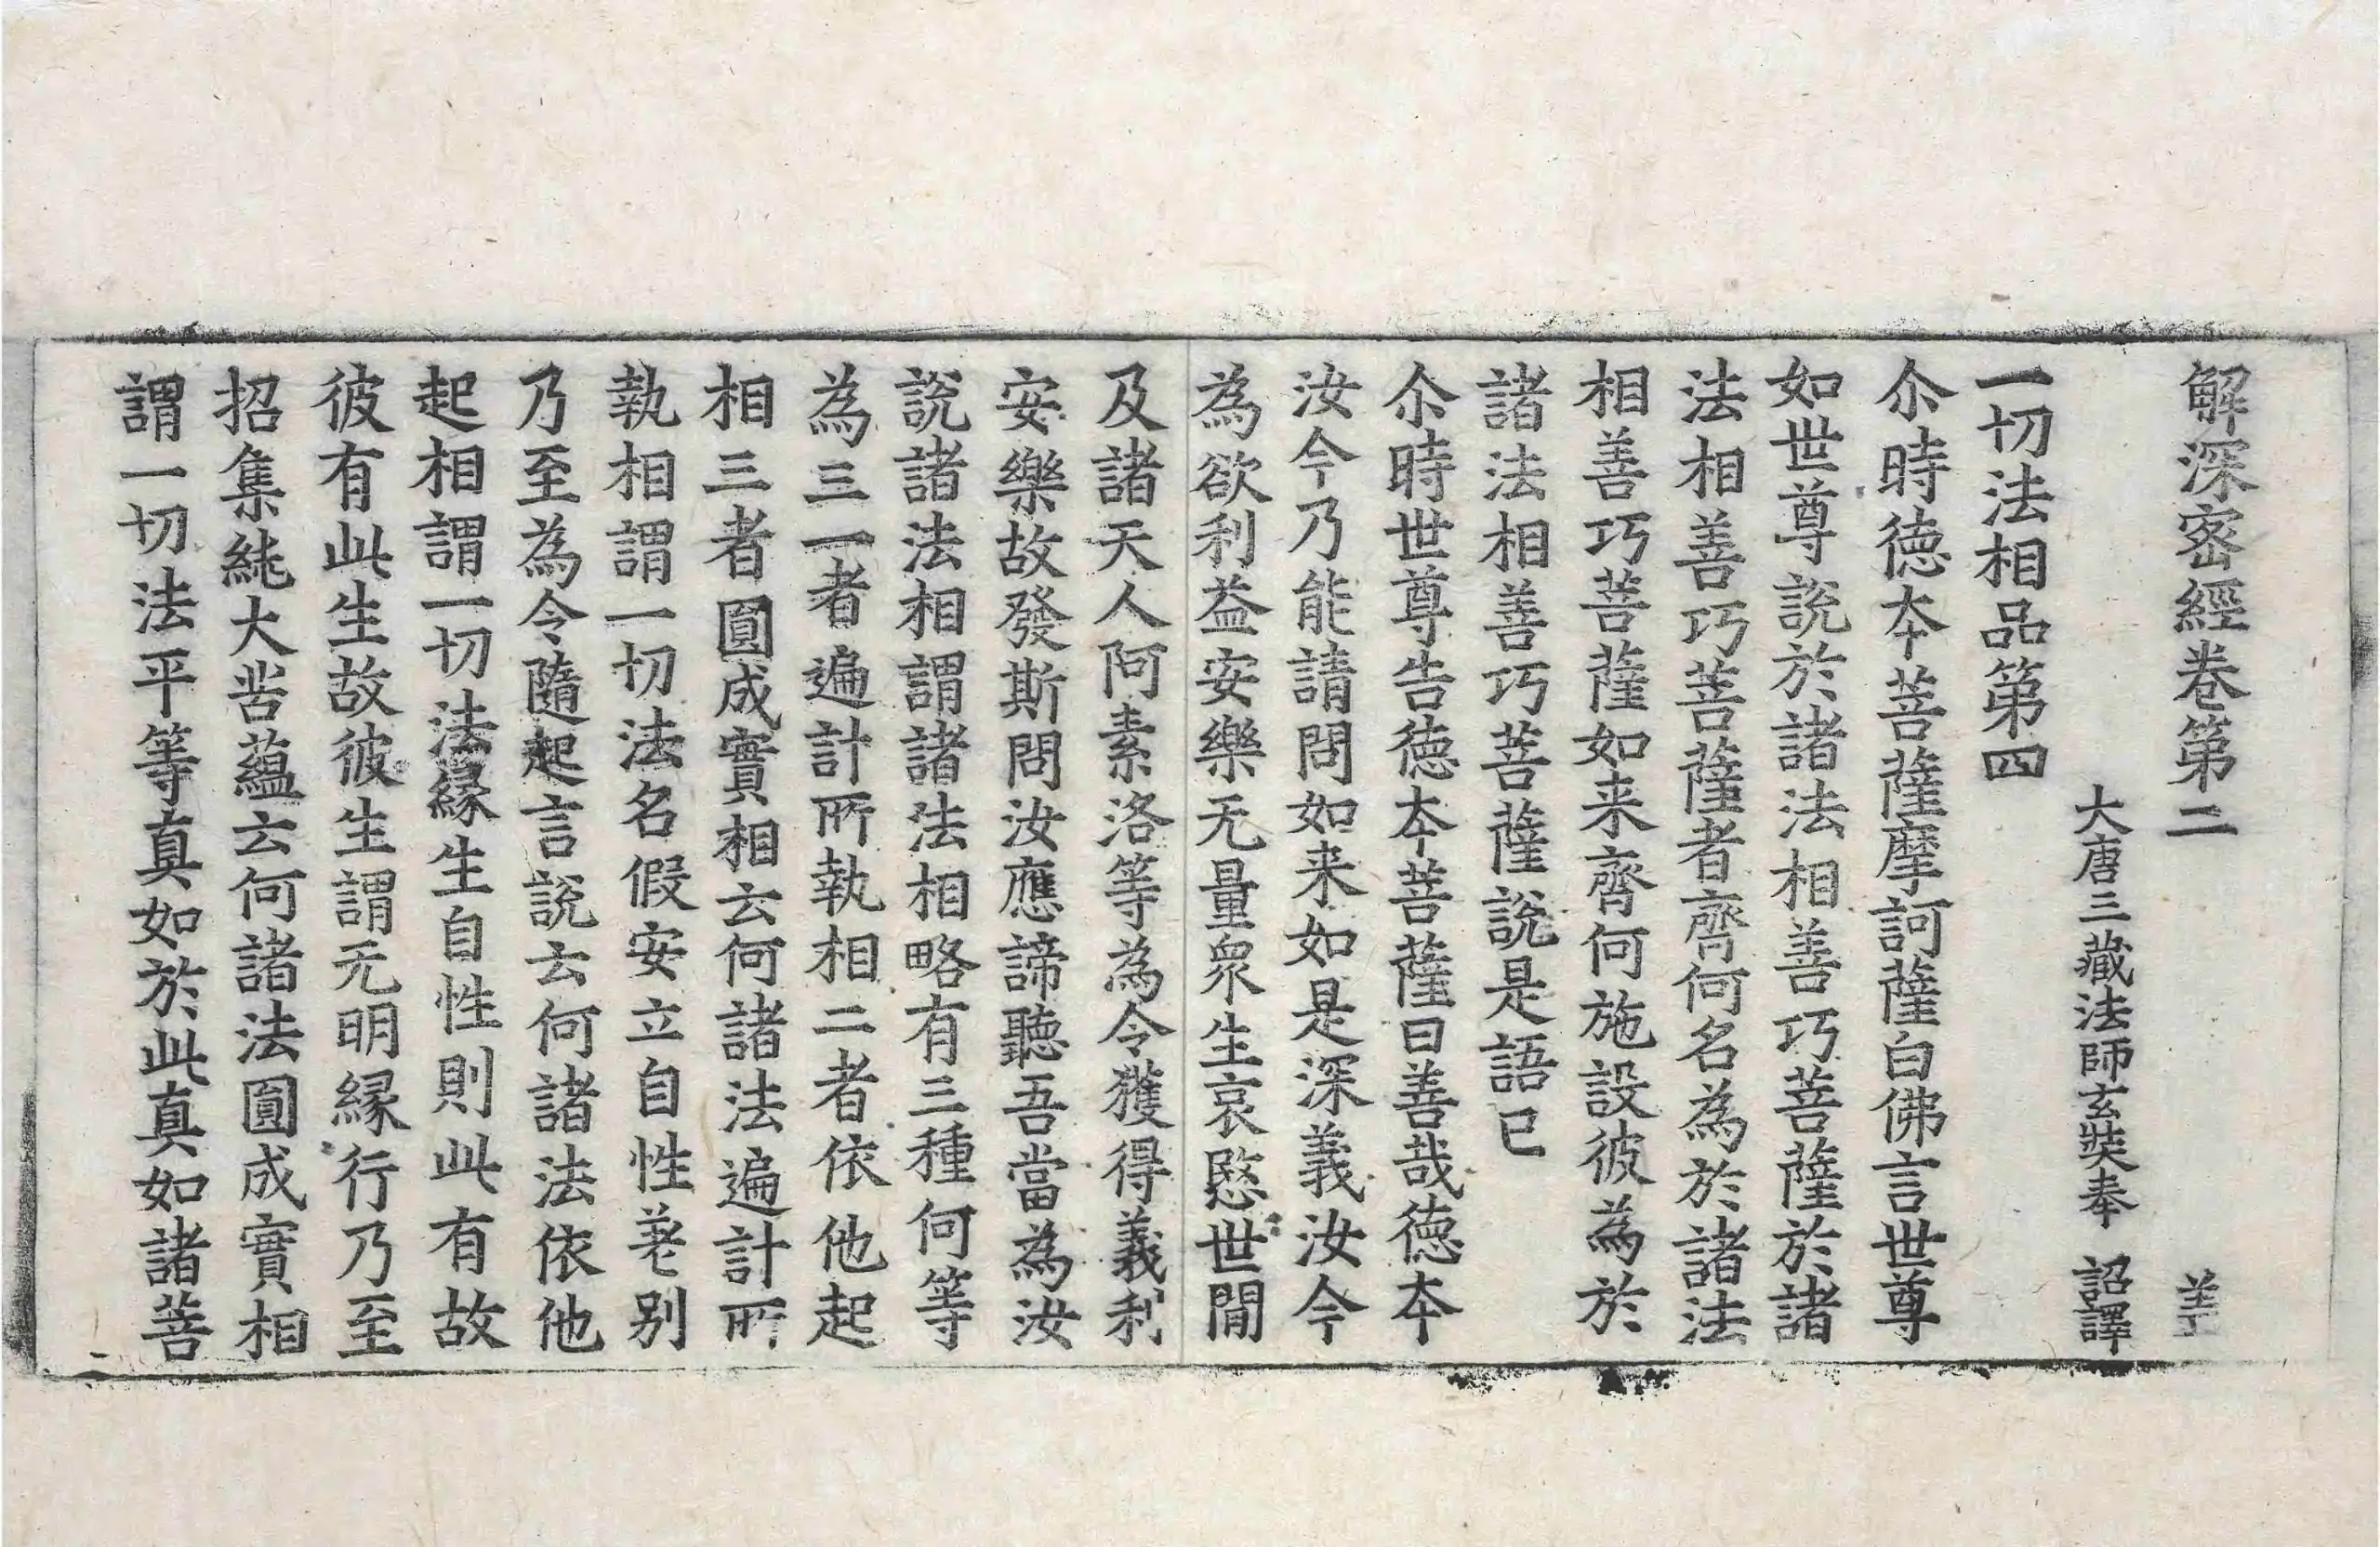 解深密經卷第二 羔
大唐三藏法師玄奘奉 詔譯
一切法相品第四
尒時德本菩薩摩訶薩白佛言世尊
如世尊說於諸法相善巧菩薩於諸
法相善巧菩薩者齊何名為於諸法
相善巧菩薩如来齊何施設彼為於
諸法相善巧菩薩說是語已
尒時世尊告德本菩薩曰善哉德本
汝今乃能請問如来如是深義汝今
為欲利益安樂无量衆生哀愍世閒
及諸天人阿素洛等為令獲得義利
安樂故發斯問汝應諦聽吾當為汝
說諸法相謂諸法相略有三種何等
為三一者遍計所執相二者依他起
相三者圓成實相云何諸法遍計所
執相謂一切法名假安立自性差别
乃至為令隨起言說云何諸法依他
起相謂一切法緣生自性則此有故
彼有此生故彼生謂无明緣行乃至
招集純大苦蘊云何諸法圓成實相
謂一切法平等真如於此真如諸菩
二